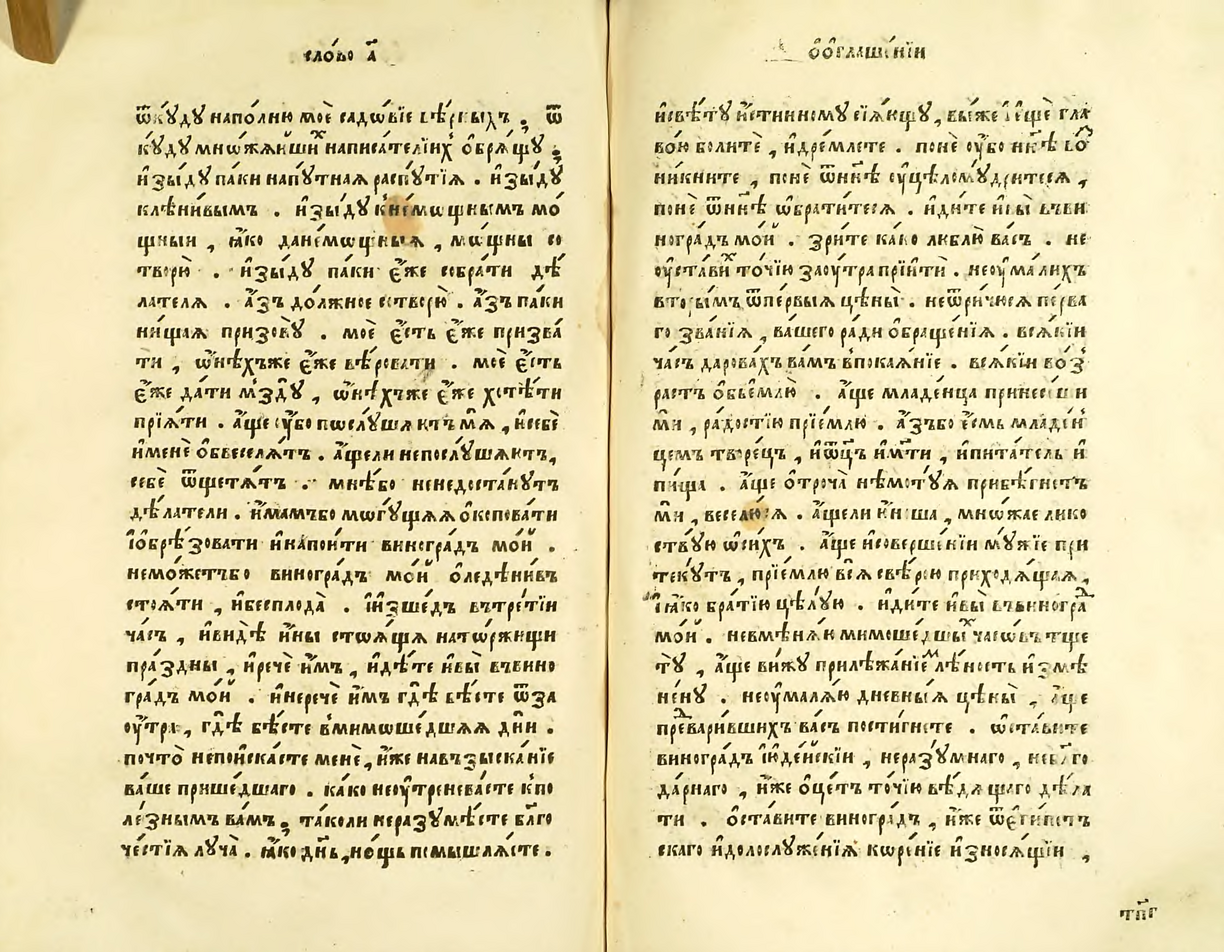 сло́во а҃
ѿкꙋ́дꙋ напо́лню моѐ садо́вїе вѣ́рныхъ , ѿ
кꙋ́дꙋ мнѡжа́йшиⷯ написа́телїихъ ѡ҆брѧ́щꙋ ;
и҆зы́дꙋ па́ки напꙋ́тнаѧ распꙋ́тїѧ . и҆зы́дꙋ
клѣни́вымъ . и҆зы́дꙋ кне́мѡщнымъ мо́
щныи , ꙗ҆́ко дане́мѡщныѧ , мѡ́щны со
творю̀ . и҆зы́дꙋ па́ки є҆́же собра́ти дѣ́
лателѧ . а҆́зъ до́лжное сотворю̀ . а҆́зъ па́ки
ни́щаѧ призовꙋ̀ . моѐ є҆́сть є҆́же призва́
ти , ѡ҆нѣ́хъже є҆́же вѣ́ровати . моѐ є҆́сть
є҆́же да́ти мздꙋ̀ , ѡ҆нѣ́хъже є҆́же хотѣ́ти
прїѧ́ти . а҆́ще ᲂу҆́бо послꙋ́шаютъ мѧ̀ , и҆себѐ
и҆менѐ ѡ҆бвеселѧ́тъ . а҆́щели непослꙋ́шаютъ,
себѐ ѿщетѧ́тъ . мнѣ́бо ненедоста́нꙋтъ
дѣ́латели . и҆́мамъбо мѡгꙋ́щаѧ ѡ҆копова́ти
і҆ѡбрѣ́зовати и҆напои́ти виногра́дъ мо́й .
немо́жетъбо виногра́дъ мо́й ѡ҆ледѣни́въ
стоѧ́ти , и҆бесплода̀ . і҆изше́дъ вътре́тїи
ча́съ , и҆ви́дѣ и҆́ны стоѧ́щѧ натѡ́ржищи
пра́здны , и҆речѐ и҆̀мъ , и҆дѣ́те и҆вы̀ въвино
гра́дъ мо́й . и҆неречѐ и҆̀мъ гдѣ̀ бѣ́сте ѿза
ᲂу҆́тра , гдѣ̀ бѣ́сте вмимѡше́дшаѧ дни̑ .
почто̀ непоиска́сте менѐ, и҆́же навъзыска́нїе
ва́ше прише́дшаго . ка́ко неᲂу҆́треневасте кпо
ле́знымъ ва́мъ ; та́коли неразꙋмѣ́сте бл҃го
че́стїѧ лꙋча̀ . ꙗ҆́ко дн҃ь , но́щь помышлѧ́сте .
ѡ҆ѡглаше́нїи
и҆свѣ́тꙋ и҆́стинномꙋ сїѧ́ющꙋ , вы́же і҆ещѐ гла
во́ю боли́те , и҆дре́млете . понѐ ᲂу҆́бо нн҃ѣ во
ни́кните , понѐ ѿнн҃ѣ ᲂу҆цѣломꙋ́дритесѧ ,
понѐ ѿнн҃ѣ ѡ҆брати́тесѧ . и҆ди́те и҆вы̀ въви
ногра́дъ мо́й . зри́те ка́ко люблю̀ ва́съ . не
ᲂу҆ста́виⷯ то́чїю заᲂу҆́тра прїитѝ . неᲂу҆ма́лихъ
вторы́мъ ѿпе́рвыѧ цѣ́ны . неѿрико́хсѧ пе́рва
го зва́нїѧ , ва́шего ра́ди ѡ҆браще́нїѧ . всѧ́кїи
ча́съ дарова́хъ ва́мъ впокаѧ́нїе . всѧ́кїи во́з
растъ ѡ҆бье́млю . а҆́ще младе́нца принесꙋ́тъ
ми , ра́достїю прїе́млю . а҆́зъбо є҆́смь младе́н
цемъ творе́цъ , и҆ѿц҃ъ и҆м҃ти , и҆пита́тель и҆
пи́ща . а҆́ще ѻ҆троча̀ нѣмотꙋ́ѧ прибѣ́гнетъ
ми , веселю́сѧ . а҆́щели ю҆́ноша , мнѡжа́е лико
ствꙋ́ю ѡ҆си́хъ . а҆́ще и҆соверше́нїи мꙋ́жїе при
текꙋ́тъ , прїе́млю всѧ̀ свѣ́рою приходѧ́щаѧ ,
і҆ꙗ҆́ко бра́тїю цѣлꙋ́ю . и҆ди́те и҆вы̀ въвиногра́ⷣ
мо́й . невмѣнѧ́ю мимоше́дшыⷯ часо́въ тще
тꙋ̀ , а҆́ще ви́жꙋ прилѣжа́нїеⷨ лѣ́ность и҆змѣ
не́нꙋ . неᲂу҆малѧ́ю дне́вныѧ цѣ́ны , а҆́ще
превари́вшихъ ва́съ пости́гнете . ѡ҆ста́вите
виногра́дъ і҆ꙋде́йскїи , неразꙋ́мнаго , небл҃го
да́рнаго , и҆́же ѻ҆́цетъ то́чїю вѣ́дѧщаго дѣ́ла
ти . ѡ҆ста́вите виногра́дъ , и҆́же ѿєги́петъ
скаго и҆долослꙋже́нїѧ ко́ренїе и҆зносѧ́щїи ,
тп҃г